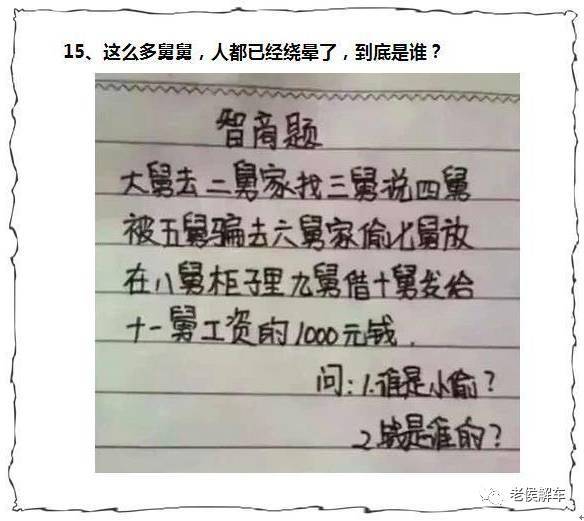 15、这么多舅舅，人都已经绕晕了，到底是谁？
智商题
大舅去二舅家找三舅说四舅
被五舅骗去六舅家偷七舅放
在八舅柜子里九舅借十舅发给
十一舅工资的1000元钱.
问：1.谁是小偷？
2.钱是谁的？
老侯解车